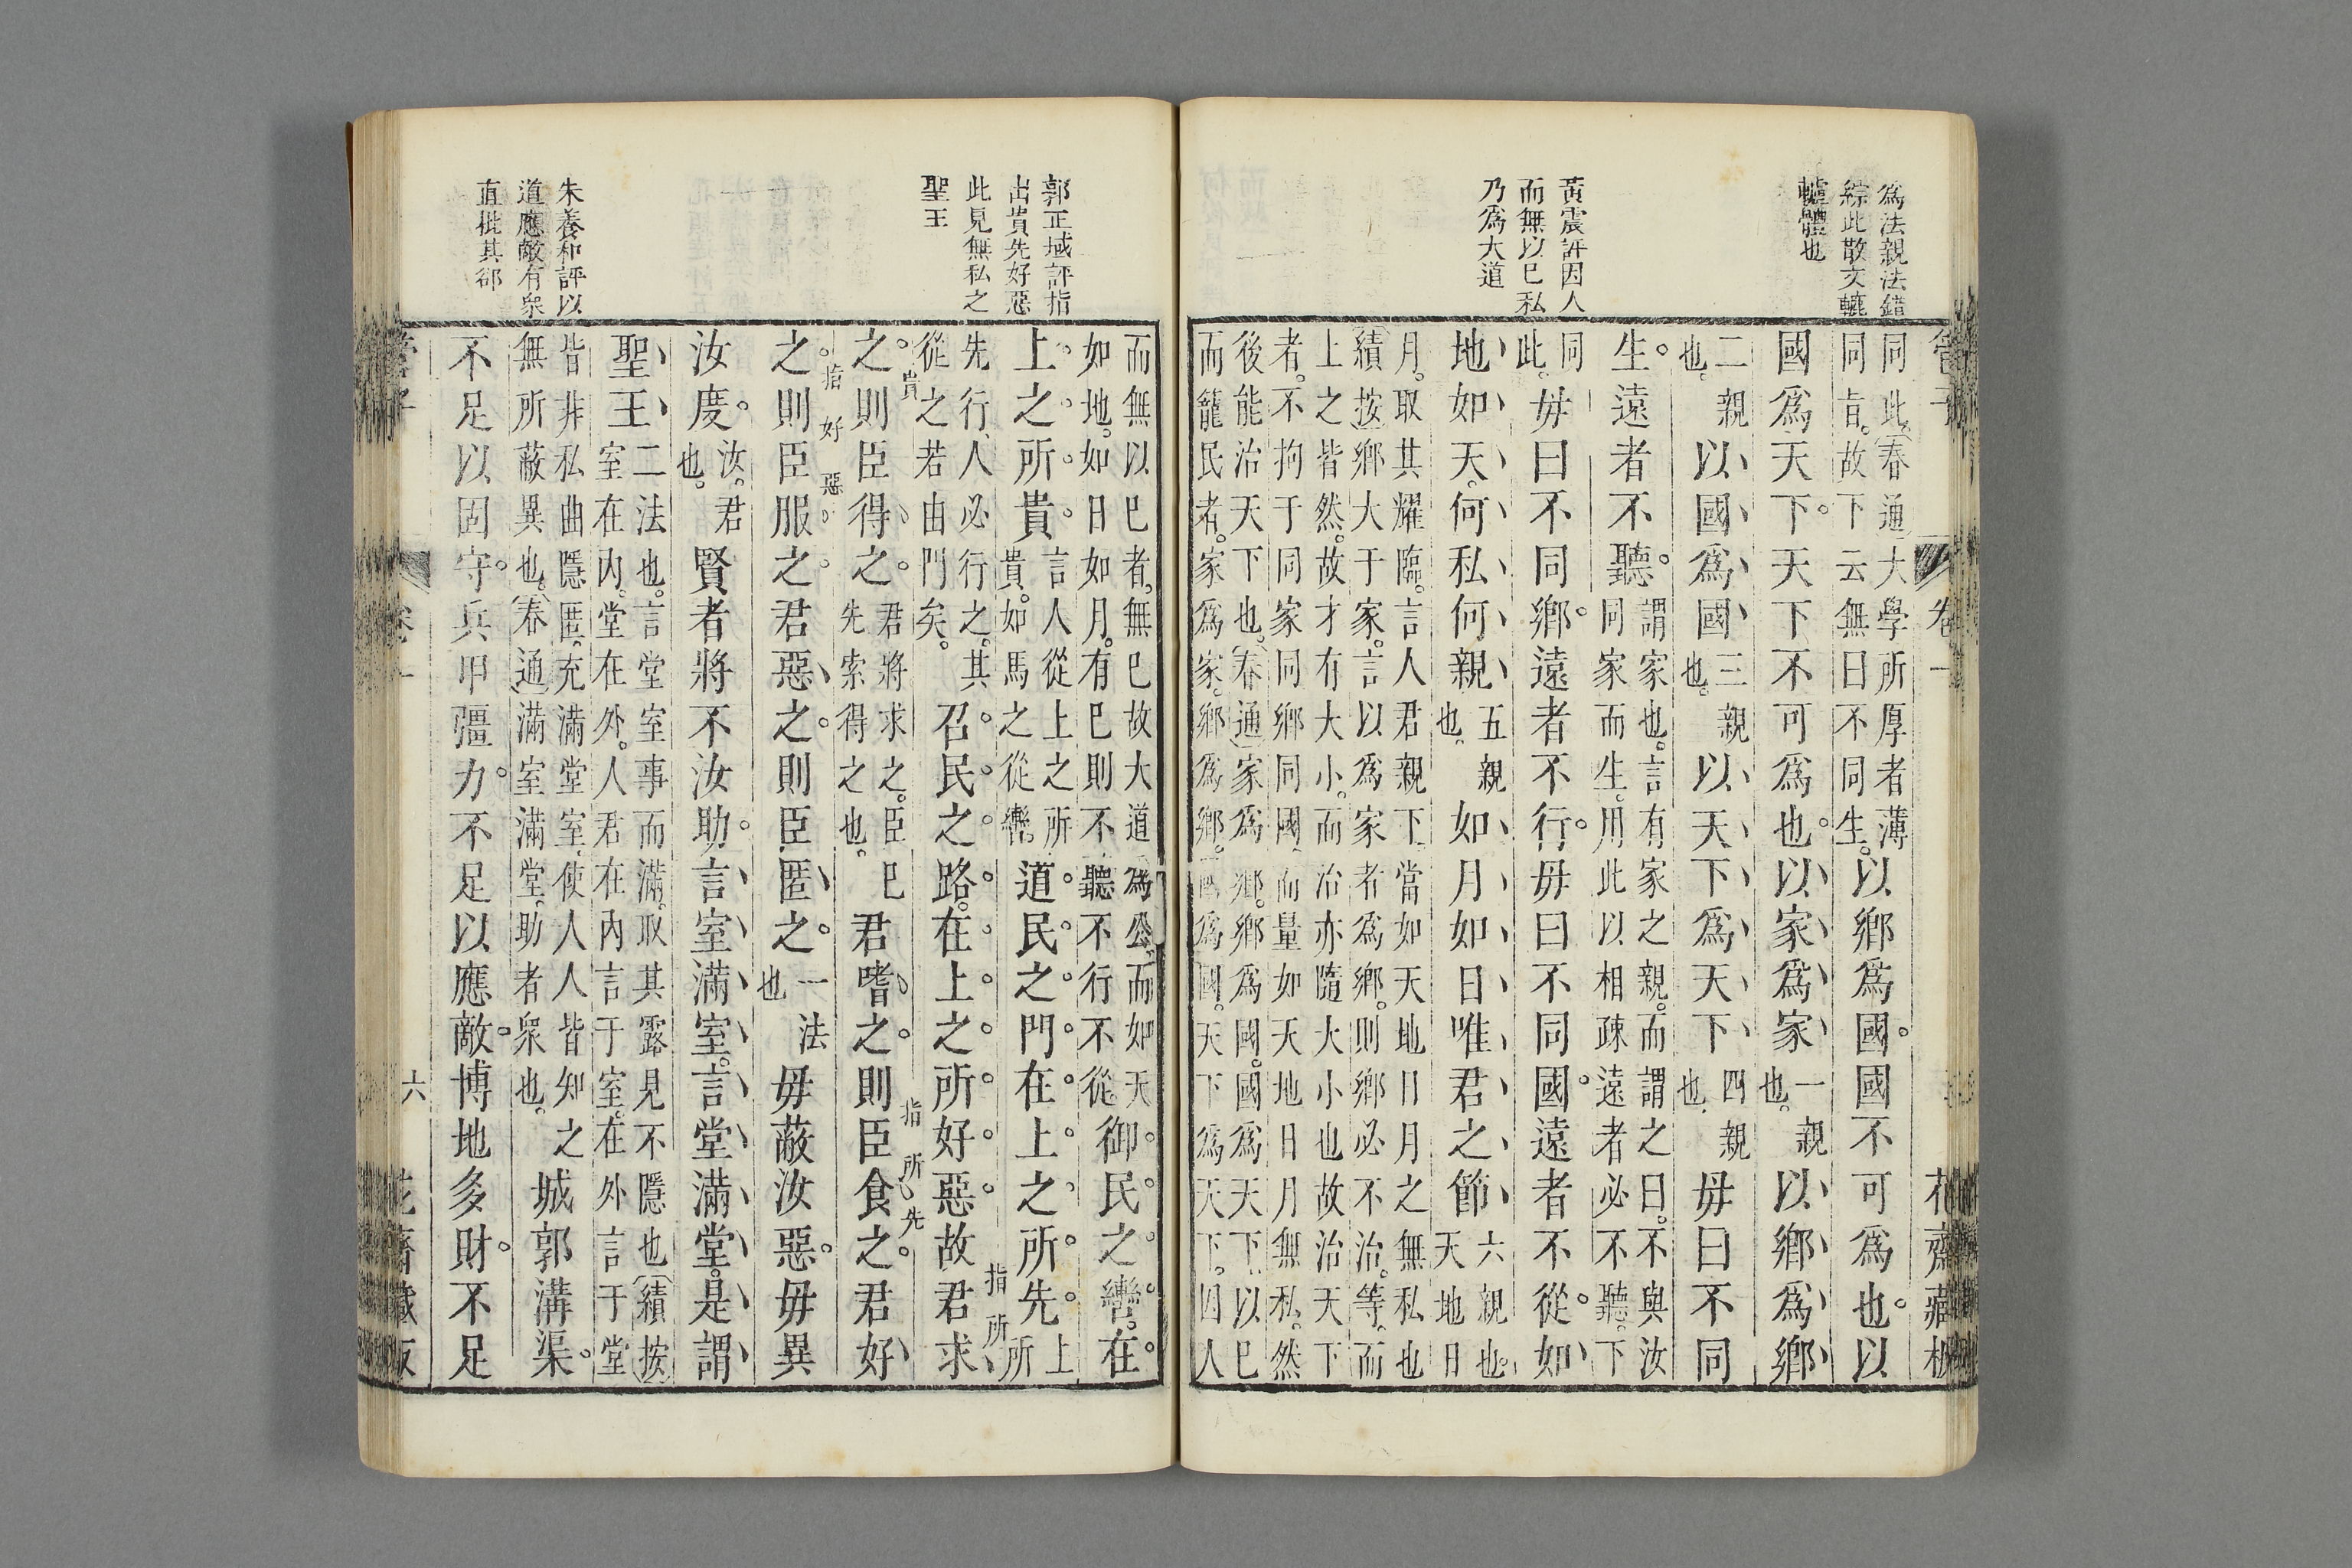 為法親法錯
綜此散文轆
轤體也
黃震評因人
而無以已私
乃為大道
管子 卷一 花齋藏板
同此。春通大學所厚者薄
同旨。故下云無曰不同生。
以鄉為國。國不可為也。以
國為天下。天下不可為也。以家為家一親也。以鄉為鄉
二親也。以國為國三親也。以天下為天下四親也。毋曰不同
生。遠者不聽。
謂家也。言有家之親。而謂之曰。不與汝
同家而生。用此以相疎遠者必不聽。下
同此。毋曰不同鄉。遠者不行。毋曰不同國。遠者不從。如
地如天。何私何親五親也。如月如日。唯君之節
六親也。
天地日
月。取其耀臨。言人君親下。當如天地日月之無私也
績按鄉大于家。言以為家者為鄉。則鄉必不治。等而
上之皆然。故才有大小。而治亦隨大小也故治天下
者。不拘于同家同鄉同國而量如天地日月無私。然
後能治天下也。春通家為鄉。鄉為國。國為天下。以已
而籠民者。家為家。鄉為鄉。國為國。天下為天下。因人
郭正域評指
出貴先好惡
此見無私之
聖王
朱養和評以
道應敵有眾
直批其郤
而無以已者。無已故大道為公。而如天
如地。如日如月。有已則不聽不行不從
御民之轡。在
上之所貴。
言人從上之所
貴。如馬之從轡
道民之門。在上之所先。
上
所
先行、人必行之。其
從之若由門矣。
召民之路。在上之所好惡。故君求
指所先
之。則臣得之。
君將求之。臣已
先索得之也。
君嗜之。則臣食之。君好
貴
指所
之。則臣服之。君惡之。則臣匿之。一法也毋蔽汝惡。毋異
指好惡
汝度。汝。君也。賢者將不汝助。言室滿室。言堂滿堂。是謂
聖王
二法也。言堂室事而滿。取其露見不隱也績按
室在內。堂在外。人君在內言于室。在外言于堂
皆非私曲隱匿。充滿堂室。使人人皆知之
無所蔽異也。春通滿室滿堂。助者眾也。
城郭溝渠。
不足以固守。兵甲彊力。不足以應敵。博地多財。不足
管子 卷一 六 花齋藏板